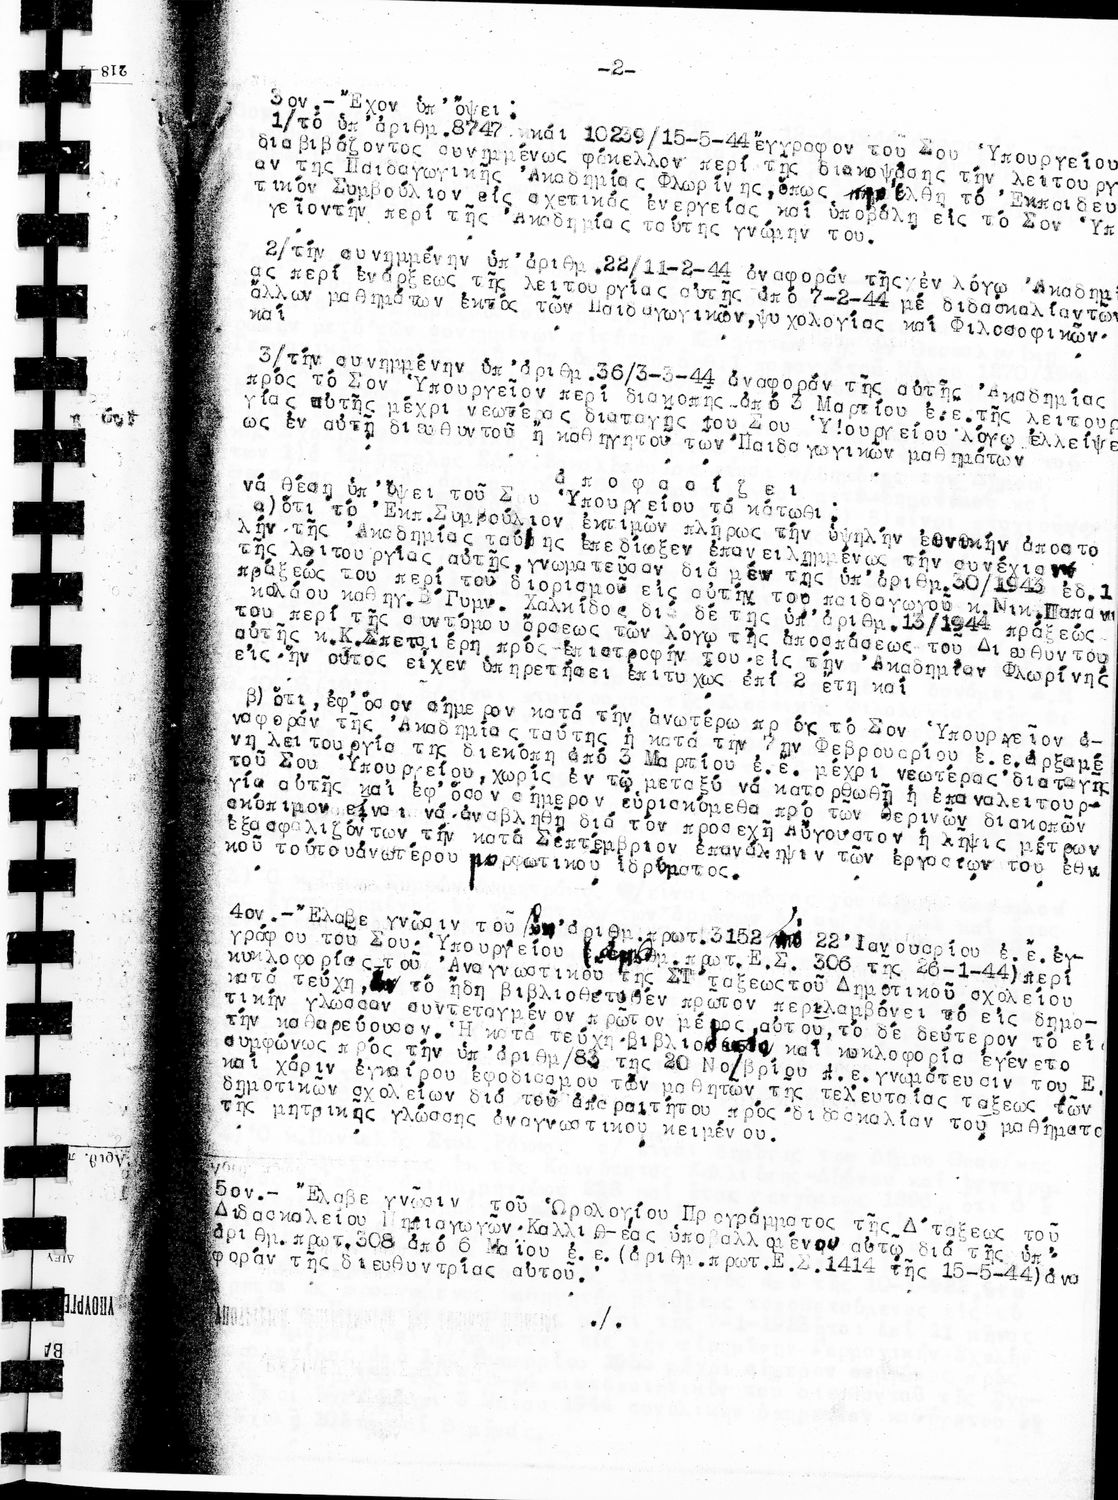 -2-
3ον.-Ἔχον ὑπ' ὄψει:
1/τό ὑπ' ἀριθμ.8747 καί 10239/15-5-44 ἔγγραφον τοῦ Σου Ὑπουργείου
διαβιβάζοντος συνημμένως φάκελλον περί τῆς διακοψάσης τήν λειτουργ
αν της Παιδαγωγικῆς Ἀκαδημίας Φλωρίνης, ὅπως ἔλθη τό Ἐκπαιδευ
τικόν Συμβούλιον εἰς σχετικάς ἐνεργείας καί ὑποβάλη εἰς τό Σον Ὑπ
γεῖοντήν περί τῆς Ἀκαδημίας ταύτης γνώμην του.
2/τήν συνημμένην ὑπ' ἀριθμ.22/11-2-44 ἀναφοράν τῆς ἐν λόγω Ἀκαδημι
ας περί ἐνάρξεως τῆς λειτουργίας αὐτῆς ἀπό 7-2-44 μέ διδασκαλίαντῶν
ἄλλων μαθημάτων ἐκτός τῶν Παιδαγωγικῶν, ψυχολογίας καί Φιλοσοφικῶν.
καί
3/τήν συνημμένην ὑπ' ἀριθμ.36/3-3-44 ἀναφοράν τῆς αὐτῆς Ἀκαδημίας
πρός τό Σον Ὑπουργεῖον περί διακοπῆς ἀπό 3 Μαρτίου ἐ.ε.τῆς λειτουρ
γίας αὐτῆς μέχρι νεωτέρας διαταγῆς του Σου Ὑ!ουργείου λόγω ἐλλείψε
ως ἐν αὐτῇ διευθυντοῦ ἤ καθηγητοῦ των Παιδαγωγικῶν μαθημάτων
ἀ π ο φ α σ ί ζ ε ι
νά θέση ὑπ' ὄψει τοῦ Σου Ὑπουργείου τά κάτωθι:
α)ὅτι τό Ἐκπ.Συμβούλιον ἐκτιμῶν πλήρως τήν ὑψηλήν ἐθνικήν ἀποστο
λήν τῆς Ἀκαδημίας ταύτης ἐπεδίωξεν ἐπανειλημμένως τήν συνέχισιν
τῆς λειτουργίας αὐτῆς, γνωματεῦσαν διά μέν της ὑπ' ἀριθμ.30/1943 ἐδ.1
πράξεώς του περί τοῦ διορισμοῦ εἰς αὐτήν του παιδαγωγοῦ κ.Νικ.Παπανι
καλάου καθηγ.Β Γυμν. Χαλκίδος διά δέ τῆς ὑπ' ἀριθμ.13/1944 πράξεώς
του περί τῆς συντόμου ἄρσεως τῶν λόγω τῆς ἀποσπάσεως του Διευθυντοῦ
αὐτῆς κ.Κ.Σπετσιέρη πρός ἐπιστροφήν του εἰς τήν Ἀκαδημίαν Φλωρίνης
εἰς ἥν οὗτος εἶχεν ὑπηρετήσει ἐπιτυχως ἐπί 2 ἔτη καί
β) ὅτι, ἐφ' ὅσον σήμερον κατά τήν ἀνωτέρω πρός τό Σον Ὑπουργεῖον ἀ-
ναφοράν τῆς Ἀκαδημίας ταύτης ἡ κατά την 7ην Φεβρουαρίου ἐ.ε.ἀρξαμέ
νη λειτουργία της διεκόπη ἀπό 3 Μαρτίου ἐ.ἔ. μέχρι νεωτέρας διαταγῆς
τοῦ Σου Ὑπουργείου, χωρίς ἐν τῷ μεταξύ νά κατορθωθῆ ἡ ἐπαναλειτουρ-
γία αὐτῆς καί ἐφ' ὅσον σήμερον εὑρισκόμεθα πρό τῶν θερινῶν διακοπῶν
σκόπιμον εἶναι νά ἀναβληθῆ διά τόν προσεχῆ Αὔγουστον ἡ λῆψις μέτρων
ἐξασφαλιζόντων τήν κατά Σεπτέμβριον ἐπανάληψιν τῶν ἐργασίων του ἐθν
κοῦ τούτουἀνωτέρου μορφωτικου ἱδρύματος.
4ον.-Ἔλαβε γνῶσιν τοῦ ὑπ' ἀριθμ.πρωτ.3152 ἀπό 22 Ἰανουαρίου ἐ.ἔ.ἐγ-
γράφου τοῦ Σου Ὑπουργείου (ἀριθμ.πρωτ.Ε.Σ. 306 τῆς 26-1-44)περί
κυκλοφορίας τοῦ Ἀναγνωστικοῦ τῆς ΣΤ' ταξεωςτοῦ Δημοτικοῦ σχολείου
κατά τεύχη, ὧν τό ἤδη βιβλιοθετηθέν πρῶτον περιλαμβάνει τό εἰς δημο-
τικήν γλῶσσαν συντεταγμένον πρῶτον μέρος αὐτου, τό δέ δεύτερον τό εἰς
τήν καθαρεύουσαν. Ἡ κατά τεύχη βιβλιοδεσία καί κυκλοφορία ἐγένετο
συμφώνως πρός τήν ὑπ' ἀριθμ/83 τῆς 20 Νο/βρίου π.ε.γνωμάτευσιν του Ε.
καί χάριν ἐγκαίρου ἐφοδιασμου τῶν μαθητῶν της τελευταίας ταξεως τῶν
δημοτικῶν σχολείων διά τοῦ ἀπαραιτήτου πρός διδασκαλίαν τοῦ μαθήματο
τῆς μητρικῆς γλώσσης ἀναγνωστικοῦ κειμένου.
5ον.- Ἔλαβε γνῶσιν τοῦ Ὡρολογίου Προγράμματος τῆς Δ' ταξεως τοῦ
Διδασκαλείου Νηπιαγωγῶν Καλλιθέας ὑποβαλλομένου αὐτῷ διά τῆς ὑπ'
ἀριθμ.πρωτ.308 ἀπό 6 Μαΐου ἐ.ε.(ἀριθμ.πρωτ.Ε.Σ.1414 τῆς 15-5-44)ἀνα
φοράν τῆς διευθυντρίας αὐτοῦ.
./.